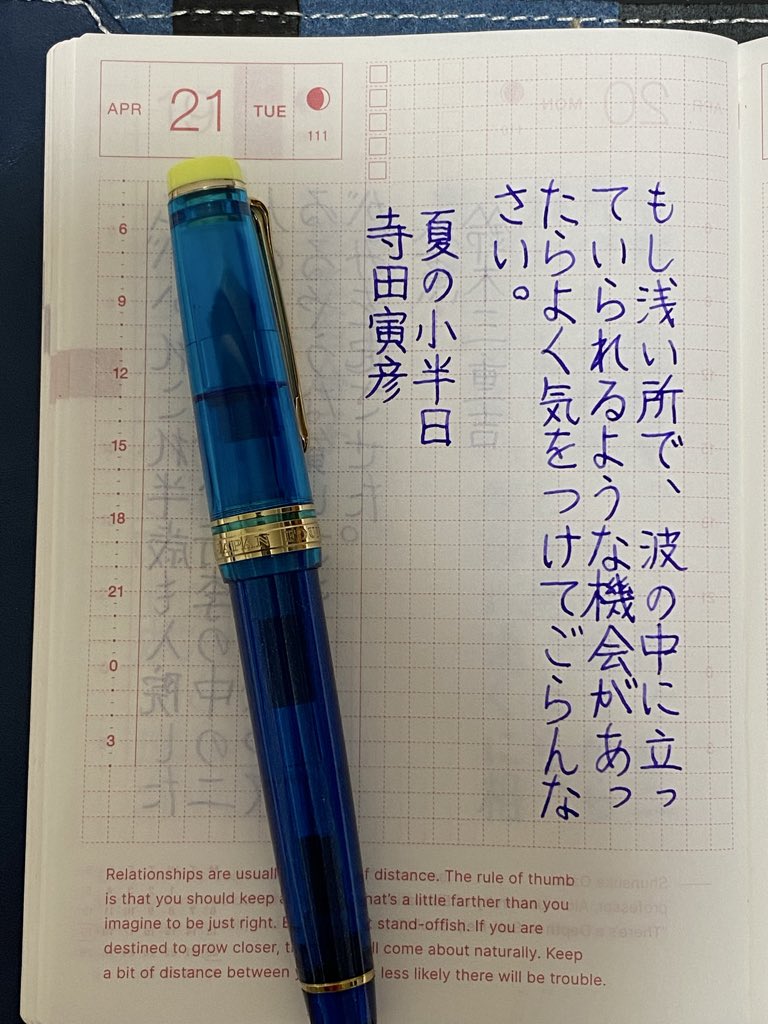 APR 21 TUE
111
もし浅い所で、波の中に立っ
ていられるような機会があっ
たらよく気をつけてごらんな
さい。
夏の小半日
寺田寅彦
6
9
12
15
18
21
0
3
Relationships are usuall f distance. The rule of thumb
is that you should keep that's a little farther than you
imagine to be just right. stand-offish. If you are
destined to grow closer, ll come about naturally. Keep
a bit of distance between less likely there will be trouble.